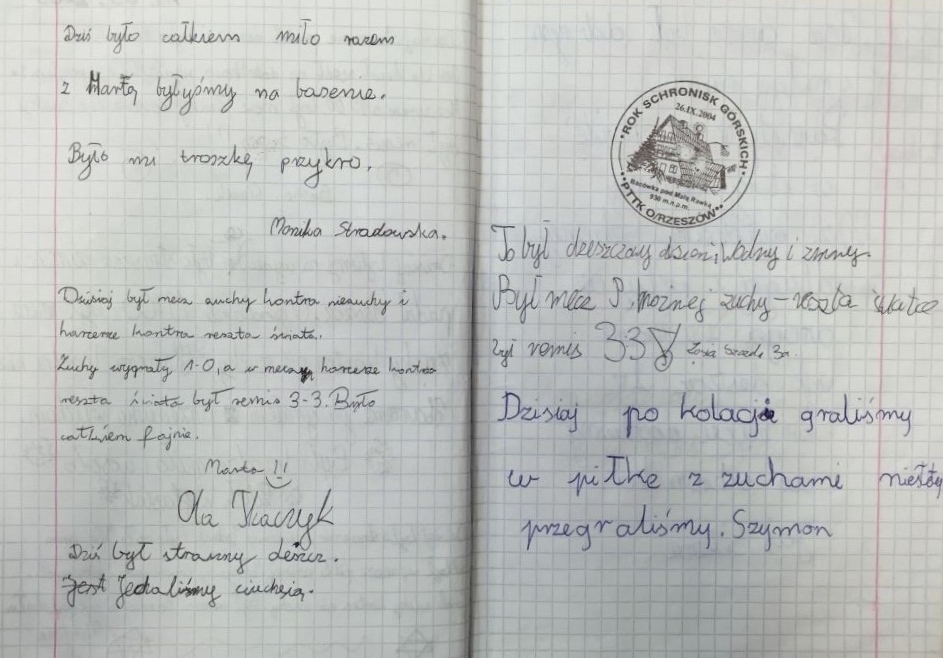 Dziś było całkiem miło razem
z Martą byłyśmy na basenie.
Było mi troszkę przykro.
Monika Stradowska.
Dzisiaj był mecz zuchy kontra niezuchy i
harcerze kontra reszta świata.
Zuchy wygrały 1-0, a w meczu harcerze kontra
reszta świata był remis 3-3. Było
całkiem fajnie.
Marta !!
Ola Tkaczyk
Dziś był straszny deszcz.
Jechaliśmy ciuchcią.
ROK SCHRONISK GÓRSKICH
26.IX.2004
Bacówka pod Małą Rawką
930 m.n.p.m.
PTTK O/RZESZÓW
To był deszczowy dzień, wodny i zimny.
Był mecz P. nożnej zuchy-reszta świata
był remis 3:3
Dzisiaj po kolacji graliśmy
w piłkę z zuchami niestety
przegraliśmy. Szymon